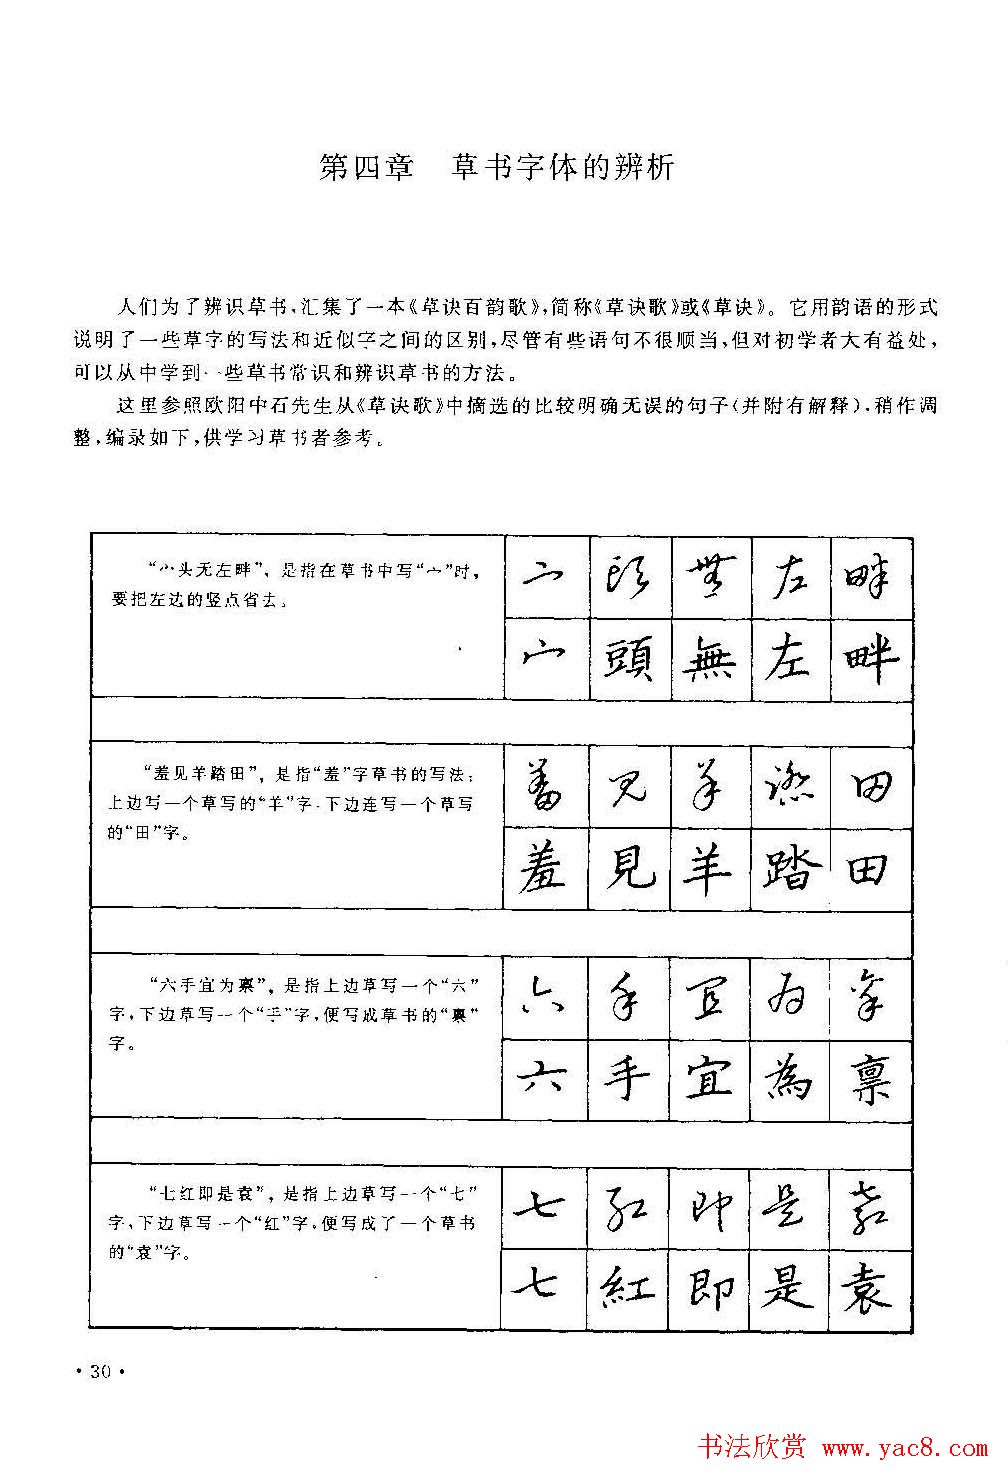 第四章 草书字体的辨析
人们为了辨识草书,汇集了一本《草诀百韵歌》,简称《草诀歌》或《草诀》。它用韵语的形式
说明了一些草字的写法和近似字之间的区别,尽管有些语句不很顺当,但对初学者大有益处,
可以从中学到一些草书常识和辨识草书的方法。
这里参照欧阳中石先生从《草诀歌》中摘选的比较明确无误的句子(并附有解释),稍作调
整,编录如下,供学习草书者参考。
“宀头无左畔”,是指在草书中写“宀”时,
要把左边的竖点省去。
宀 头 無 左 畔
宀 頭 無 左 畔
“羞见羊踏田”,是指“羞”字草书的写法:
上边写一个草写的“羊”字,下边连写一个草写
的“田”字。
羞 见 羊 踏 田
羞 見 羊 踏 田
“六手宜为禀”,是指上边草写一个“六”
字,下边草写一个“手”字,便写成草书的“禀”
字。
六 手 宜 为 禀
六 手 宜 為 禀
“七红即是袁”,是指上边草写一个“七”
字,下边草写一个“红”字,便写成了一个草书
的“袁”字。
七 红 即 是 袁
七 紅 即 是 袁
·30·
书法欣赏 www.yac8.com